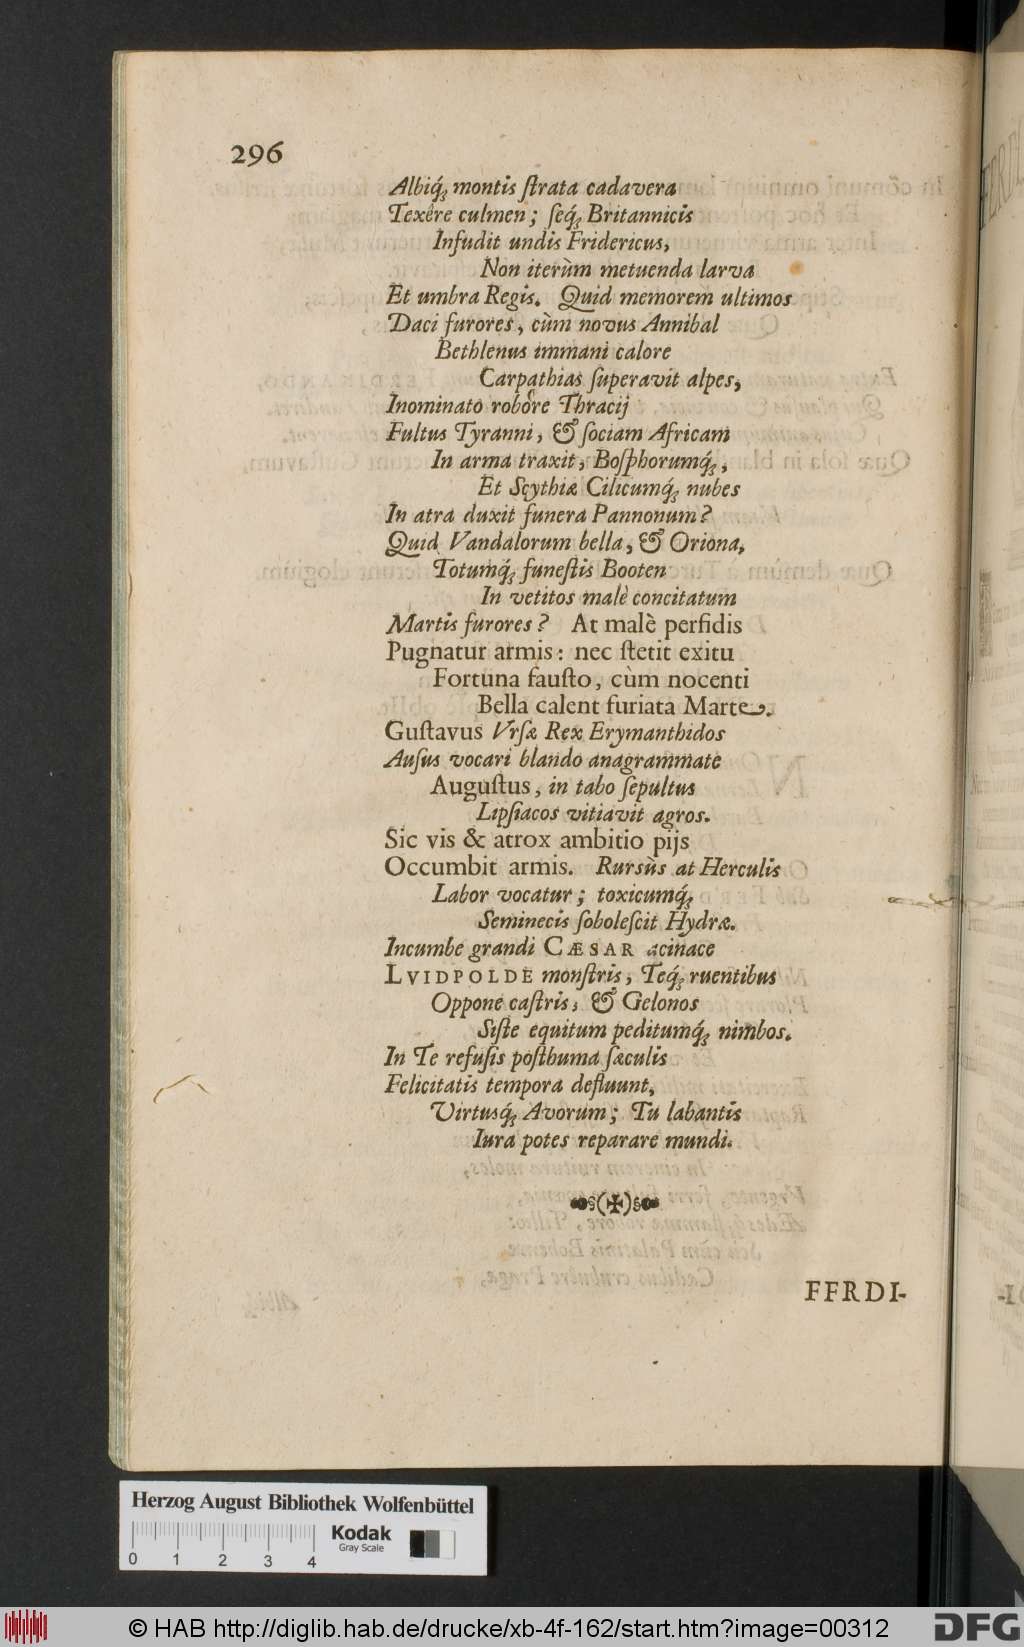 296
Albiq́ꝫ montis ſtrata cadavera
Texêre culmen; ſeq́ꝫ Britannicis
Infudit undis Fridericus,
Non iterùm metuenda larva
Et umbra Regis. Quid memorem ultimos
Daci furores, cùm novus Annibal
Bethlenus immani calore
Carpathias ſuperavit alpes,
Inominato robore Thracij
Fultus Tyranni, & ſociam Africam
In arma traxit, Boſphorumq́ꝫ,
Et Scythiæ Cilicumq́ꝫ nubes
In atra duxit funera Pannonum?
Quid Vandalorum bella, & Oriona,
Totumq́ꝫ funeſtis Booten
In vetitos malè concitatum
Martis furores? At malè perfidis
Pugnatur armis: nec ſtetit exitu
Fortuna fauſto, cùm nocenti
Bella calent furiata Marte.
Guſtavus Vrſæ Rex Erymanthidos
Auſus vocari blando anagrammate
Auguſtus, in tabo ſepultus
Lipſiacos vitiavit agros.
Sic vis & atrox ambitio pijs
Occumbit armis. Rursùs at Herculis
Labor vocatur; toxicumq́ꝫ
Seminecis ſoboleſcit Hydræ.
Incumbe grandi CÆSAR acinace
LVIDPOLDE monſtris, Teq́ꝫ ruentibus
Oppone caſtris, & Gelonos
Siſte equitum peditumq́ꝫ nimbos.
In Te refuſis poſthuma ſæculis
Felicitatis tempora defluunt,
Virtusq́ꝫ Avorum; Tu labantis
Iura potes reparare mundi.
FFRDI-
Herzog August Bibliothek Wolfenbüttel
Kodak
Gray Scale
0 1 2 3 4
© HAB http://diglib.hab.de/drucke/xb-4f-162/start.htm?image=00312
DFG